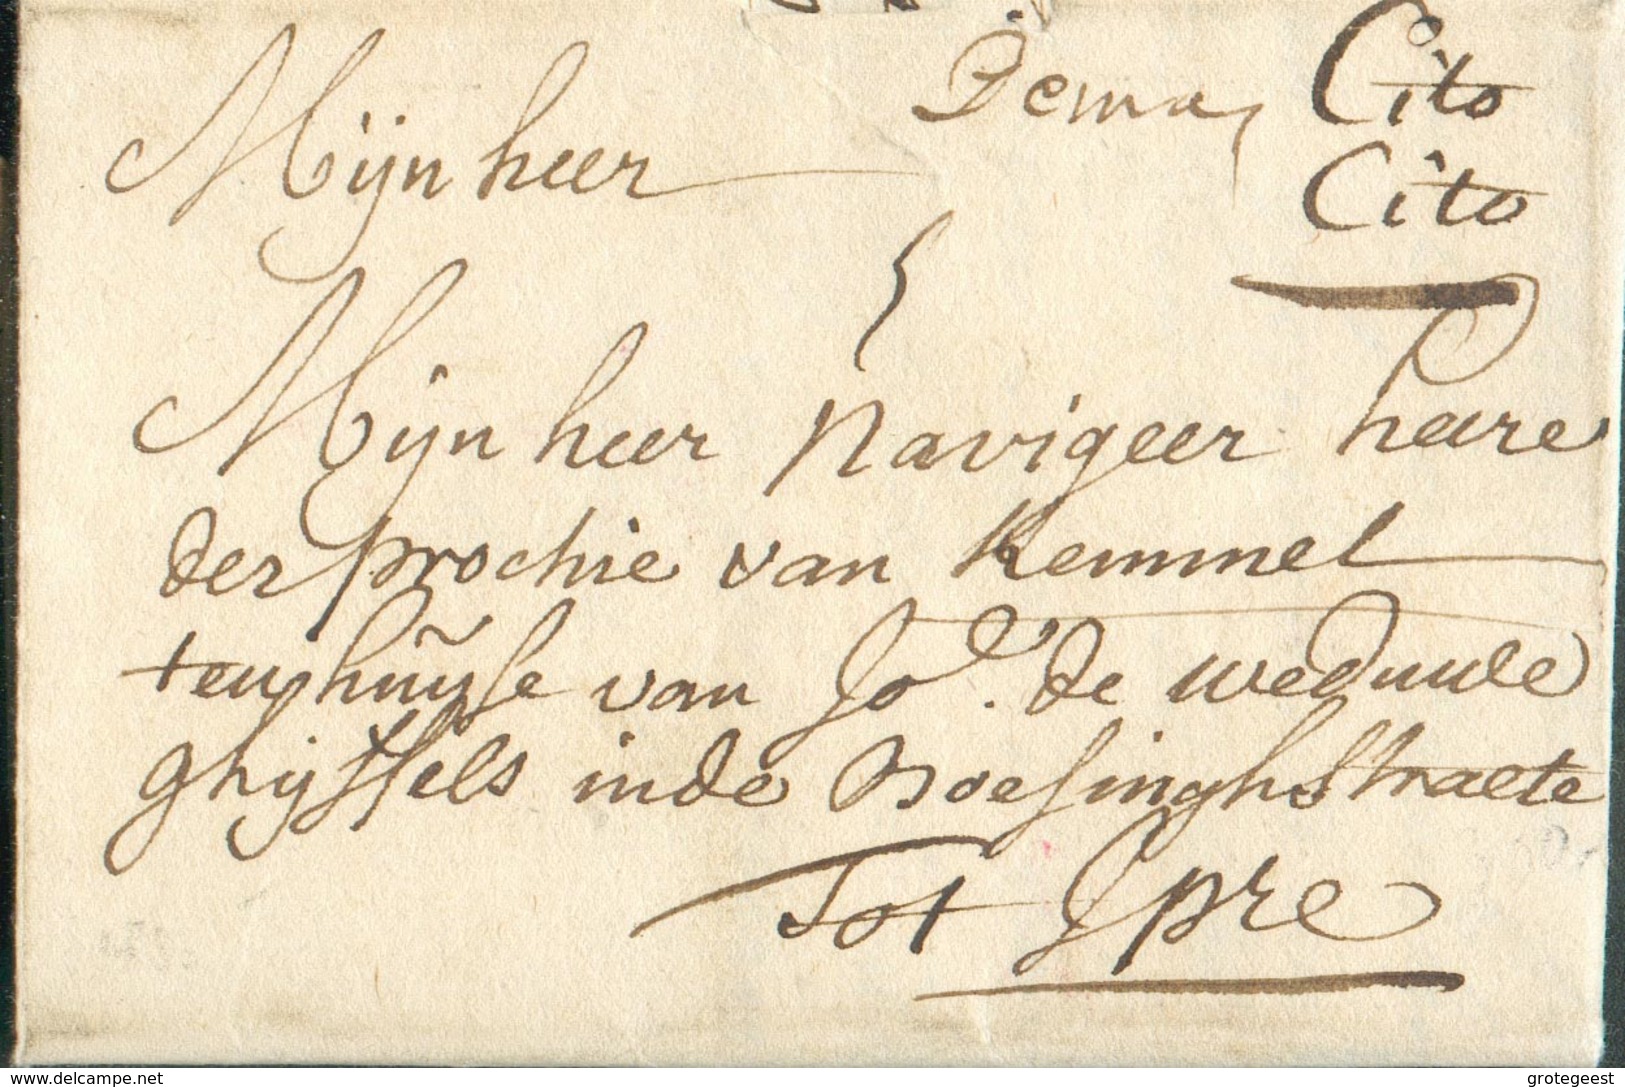 Cito
Mijn heer Cito
Mijn heer Navigeer heere
der prochie van Kemmel
ten huijse van Jo.e de weduwe
ghijssels inde Boesinghstraete
Tot Ipre
www.delcampe.net grotegeest